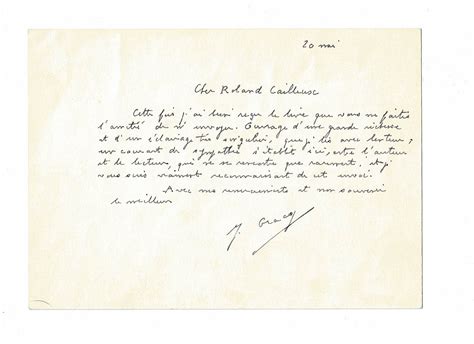 20 mai
Cher Roland Cailleux
Cette fois j'ai bien reçu le livre que vous me faites
l'amitié de m'envoyer. Ouvrage d'une grande richesse
et d'un éclairage très singulier, que je lis avec lenteur ;
un courant de sympathie s'établit ici, entre l'auteur
et le lecteur, qui ne se rencontre que rarement, et je
vous suis vraiment reconnaissant de cet envoi.
Avec mes remerciements et mon souvenir
le meilleur
J. Gracq